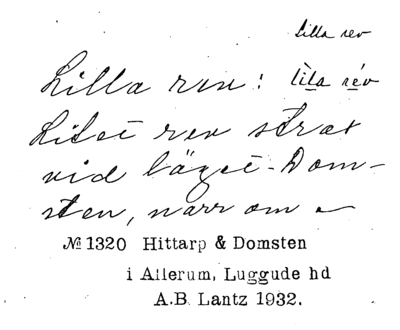 Lilla rev
Lilla rev: lìla rév
Litet rev strax
vid läget Dom-
sten, norr om
№ 1320 Hittarp & Domsten
i Allerum, Luggude hd
A.B. Lantz 1932.